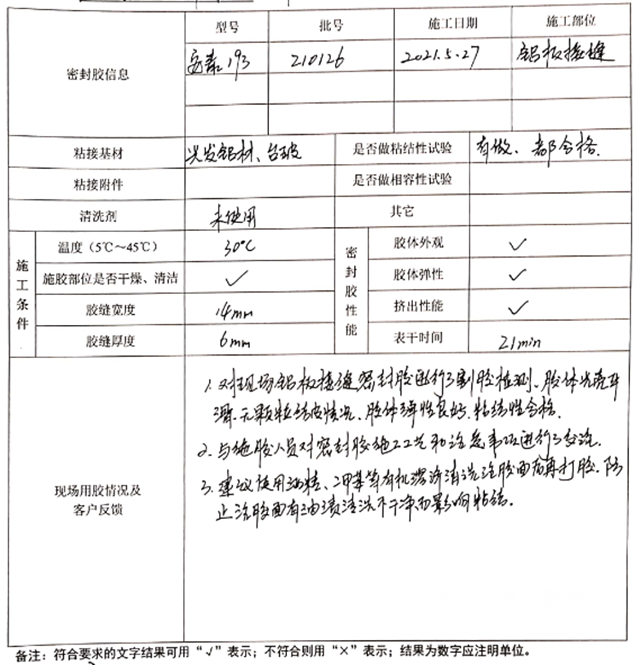 型号 批号 施工日期 施工部位
密封胶信息 安泰193 210126 2021.5.27 铝板接缝
粘接基材 兴发铝材、台玻 是否做粘结性试验 有做、都合格.
粘接附件 是否做相容性试验
清洗剂 未使用 其它
施工条件 温度（5℃～45℃） 30℃ 密封胶性能 胶体外观 ✓
施胶部位是否干燥、清洁 ✓ 胶体弹性 ✓
胶缝宽度 14mm 挤出性能 ✓
胶缝厚度 6mm 表干时间 21min
现场用胶情况及
客户反馈
1. 对现场铝板接缝密封胶进行了割胶检测、胶体光亮平
滑、无颗粒结皮情况、胶体弹性良好、粘结性合格.
2. 与施胶人员对密封胶施工工艺和注意事项进行了交流.
3. 建议使用油精、二甲苯等有机溶济清洗注胶面后再打胶、防
止注胶面有油渍清洗不干净而影响粘结.
备注：符合要求的文字结果可用“√”表示；不符合则用“×”表示；结果为数字应注明单位。